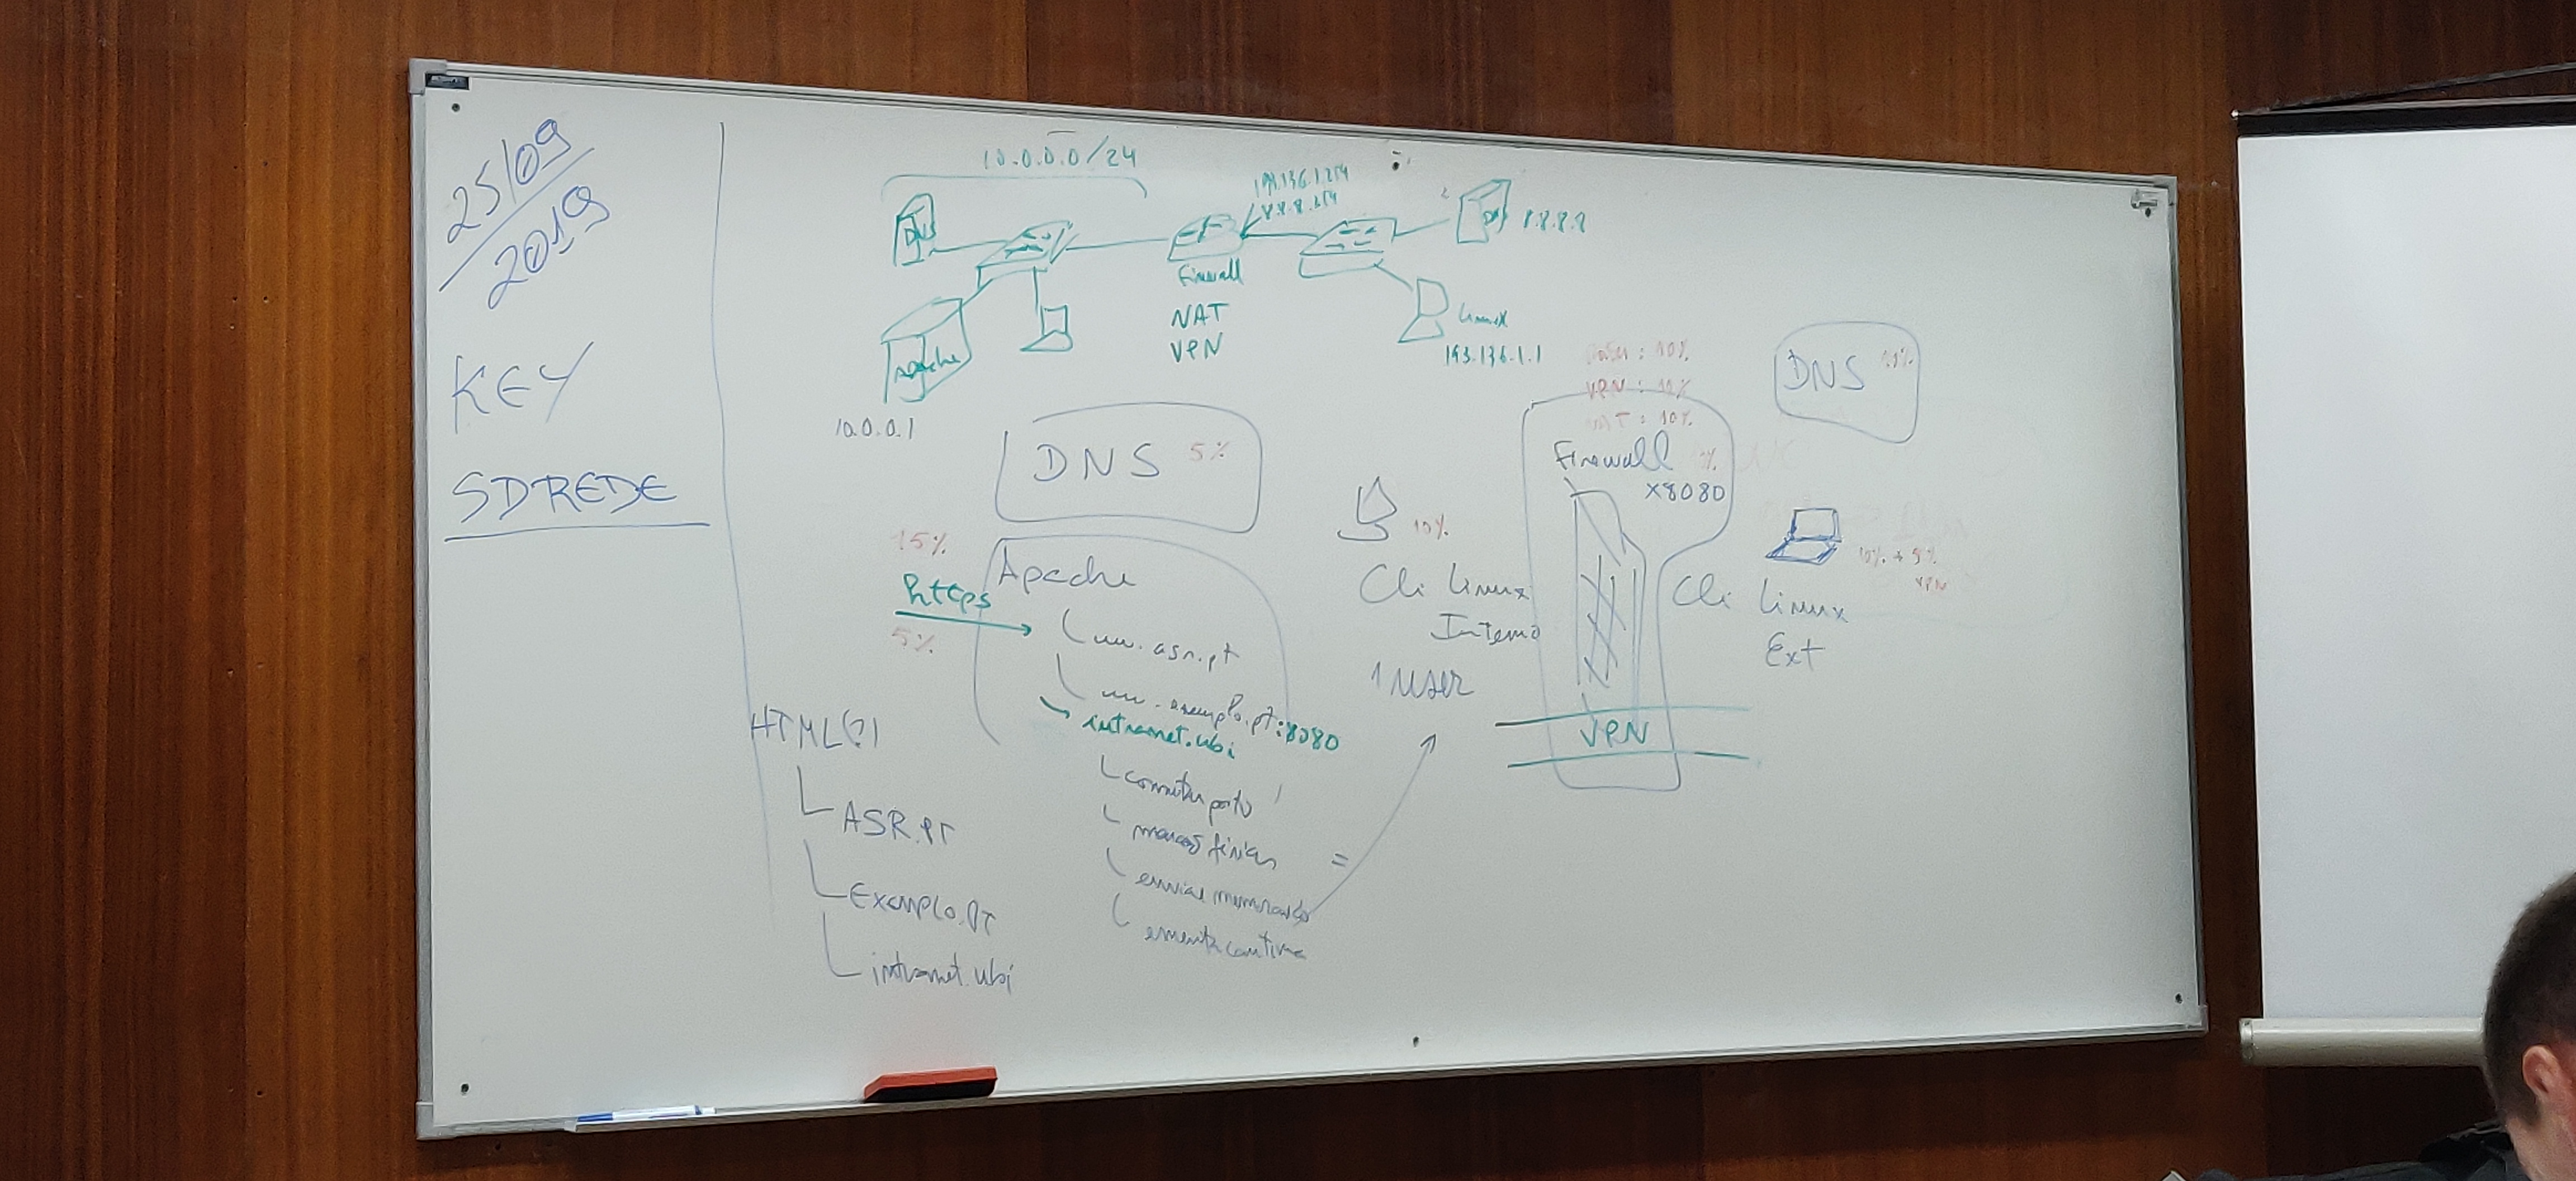 25/09
2019
KEY
SDREDE
10.0.0.0/24
DNS
Apache
10.0.0.1
193.136.1.254
8.8.8.254
Firewall
NAT
VPN
8.8.8.8
Linux
193.136.1.1
DNS 5%
15%
https
5%
Apache
www.asr.pt
www.exemplo.pt:8080
intranet.ubi
marcar férias
ementa cantina
=
HTML(?)
ASR.PT
EXEMPLO.PT
intranet.ubi
10%
Cli Linux
Interno
1 USER
: 10%
VPN : 10%
NAT : 10%
Firewall
x8080
VPN
DNS
10% + 5%
VPN
Cli Linux
Ext